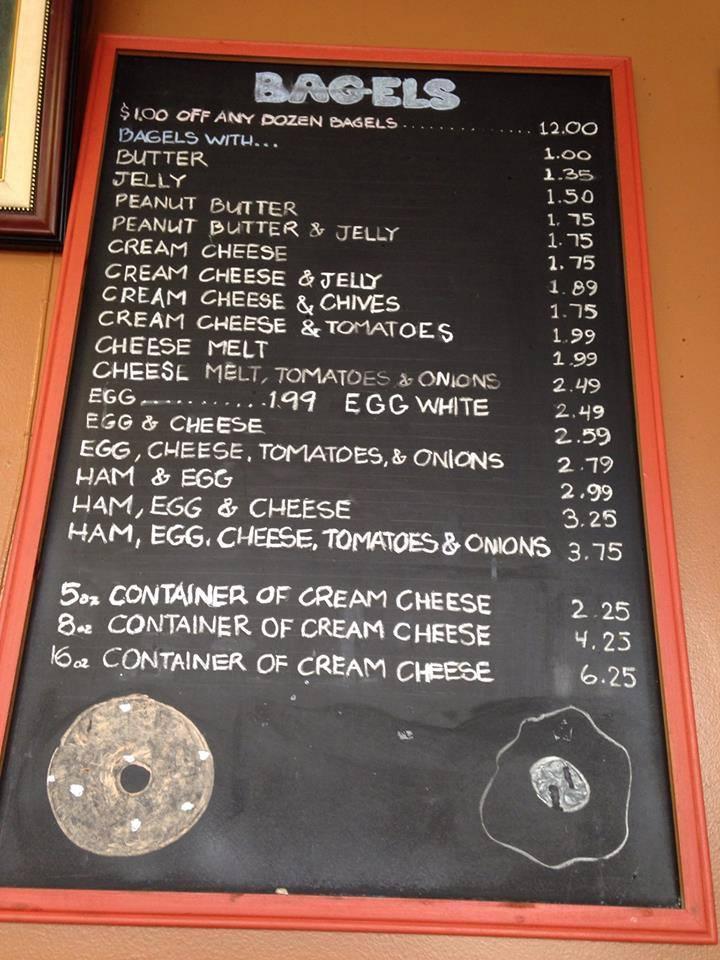 BAGELS
$1.00 OFF ANY DOZEN BAGELS .............. 12.00
BAGELS WITH... 1.00
BUTTER 1.35
JELLY 1.50
PEANUT BUTTER 1.75
PEANUT BUTTER & JELLY 1.75
CREAM CHEESE 1.75
CREAM CHEESE & JELLY 1.89
CREAM CHEESE & CHIVES 1.75
CREAM CHEESE & TOMATOES 1.99
CHEESE MELT 1.99
CHEESE MELT, TOMATOES & ONIONS 2.49
EGG ........... 1.99 EGG WHITE 2.49
EGG & CHEESE 2.59
EGG, CHEESE, TOMATOES, & ONIONS 2.79
HAM & EGG 2.99
HAM, EGG & CHEESE 3.25
HAM, EGG, CHEESE, TOMATOES & ONIONS 3.75
5oz CONTAINER OF CREAM CHEESE 2.25
8oz CONTAINER OF CREAM CHEESE 4.25
16oz CONTAINER OF CREAM CHEESE 6.25